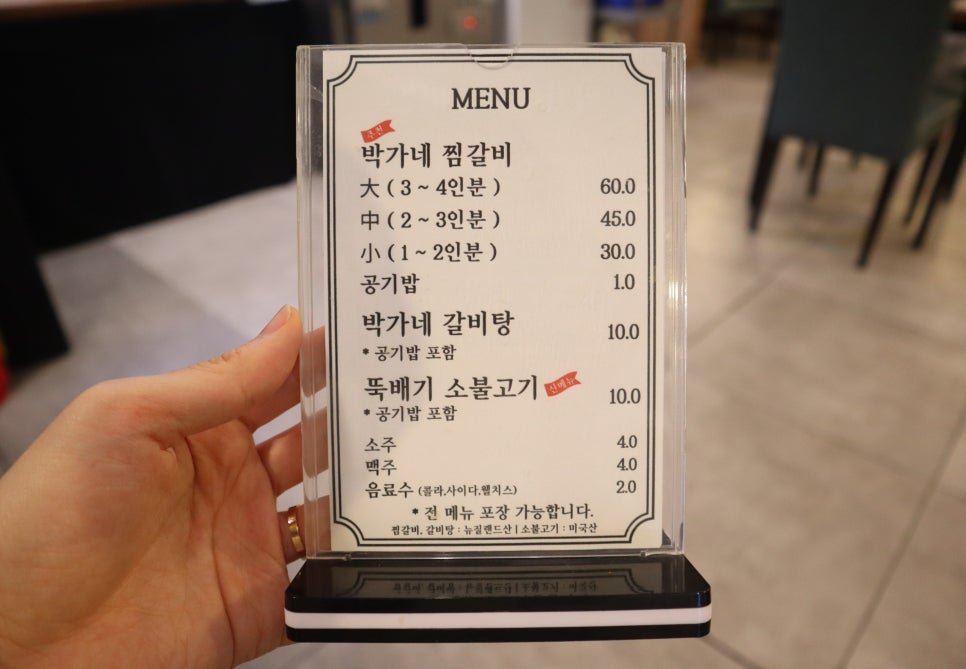 MENU
추천
박가네 찜갈비
大 ( 3 ~ 4인분 ) 60.0
中 ( 2 ~ 3인분 ) 45.0
小 ( 1 ~ 2인분 ) 30.0
공기밥 1.0
박가네 갈비탕 10.0
* 공기밥 포함
뚝배기 소불고기 신메뉴 10.0
* 공기밥 포함
소주 4.0
맥주 4.0
음료수 (콜라,사이다,웰치스) 2.0
* 전 메뉴 포장 가능합니다.
찜갈비, 갈비탕 : 뉴질랜드산 | 소불고기 : 미국산